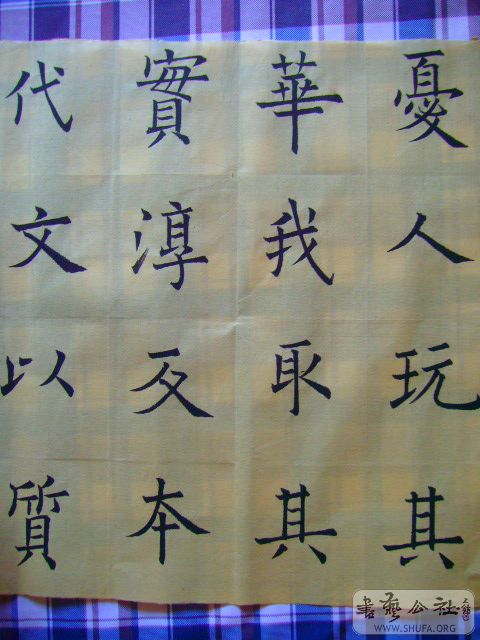 憂人玩其
華我取其
實淳反本
代文以質
書藝公社
WWW.SHUFA.ORG